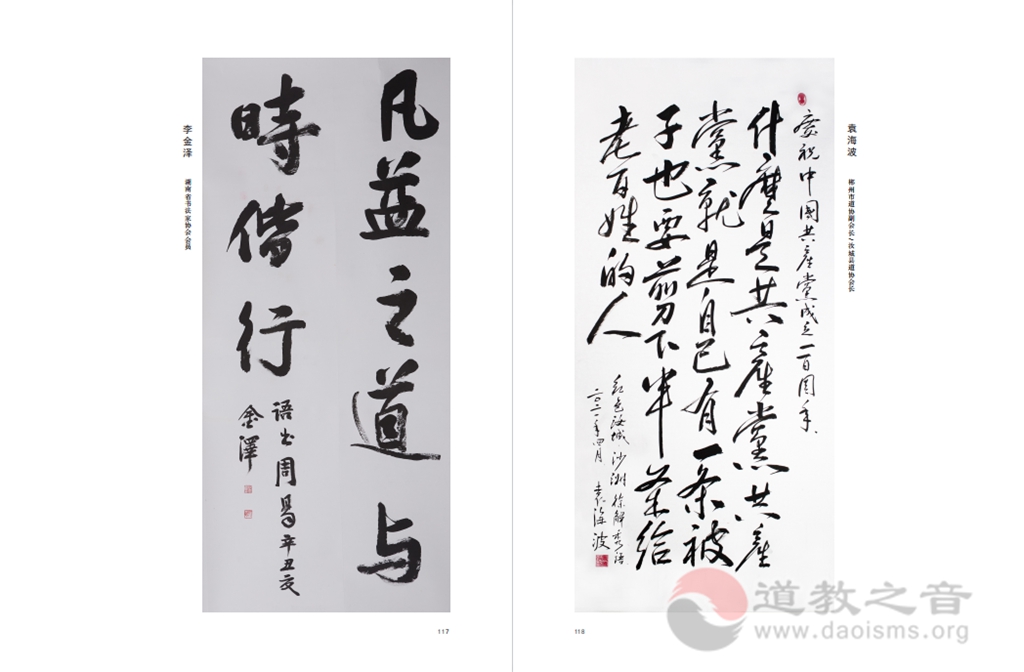 李金泽
湖南省书法家协会会员
凡益之道与
時偕行
语出周易辛丑夏
金澤
117
袁海波
郴州市道协副会长/汝城县道协会长
慶祝中國共產黨成立一百周年
什麼是共產黨共產
黨就是自己有一条被
子也要剪下半条给
老百姓的人
红色汝城沙洲徐解秀语
二〇二一年四月 袁海波
118
道教之音
www.daoisms.org